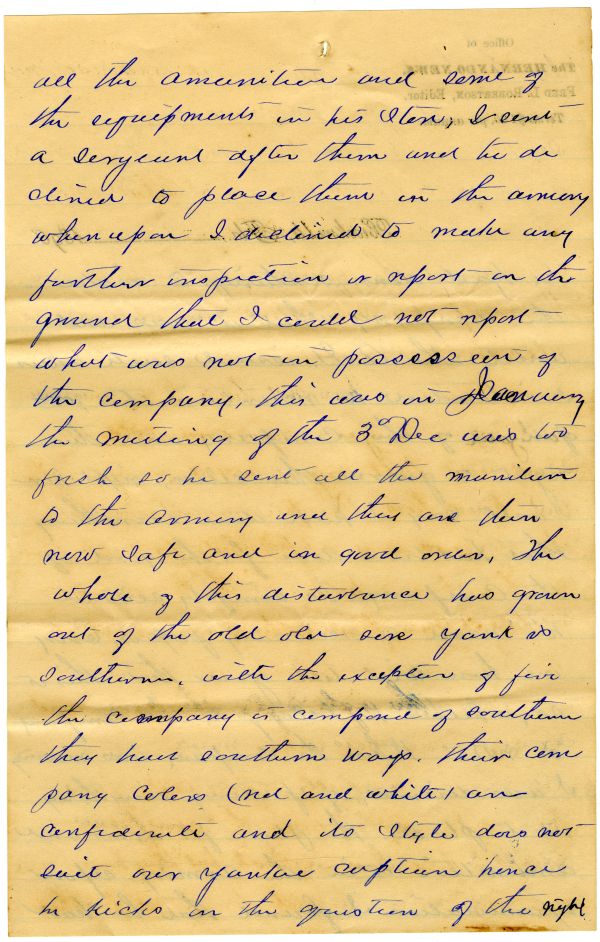 Office of
The HERNANDO NEWS,
FRED L. ROBERTSON, Editor.
all the amunition and some of
the equipments in his Store, I sent
a sergeant after them and he de
clined to place them in the armory
whereupon I declined to make any
further inspection or report on the
ground that I could not report
what was not in possession of
the company, this was in January
the meeting of the 3d Dec was too
fresh so he sent all the munition
to the armory and they are there
now safe and in good order, The
whole of this disturbance has grown
out of the old old sore Yank vs
Southerner, with the exception of five
the company is composed of southern
they have southern ways. their com
pany colors (red and white) are
confederate and its style does not
suit our yankee captain hence
he kicks on the question of the right